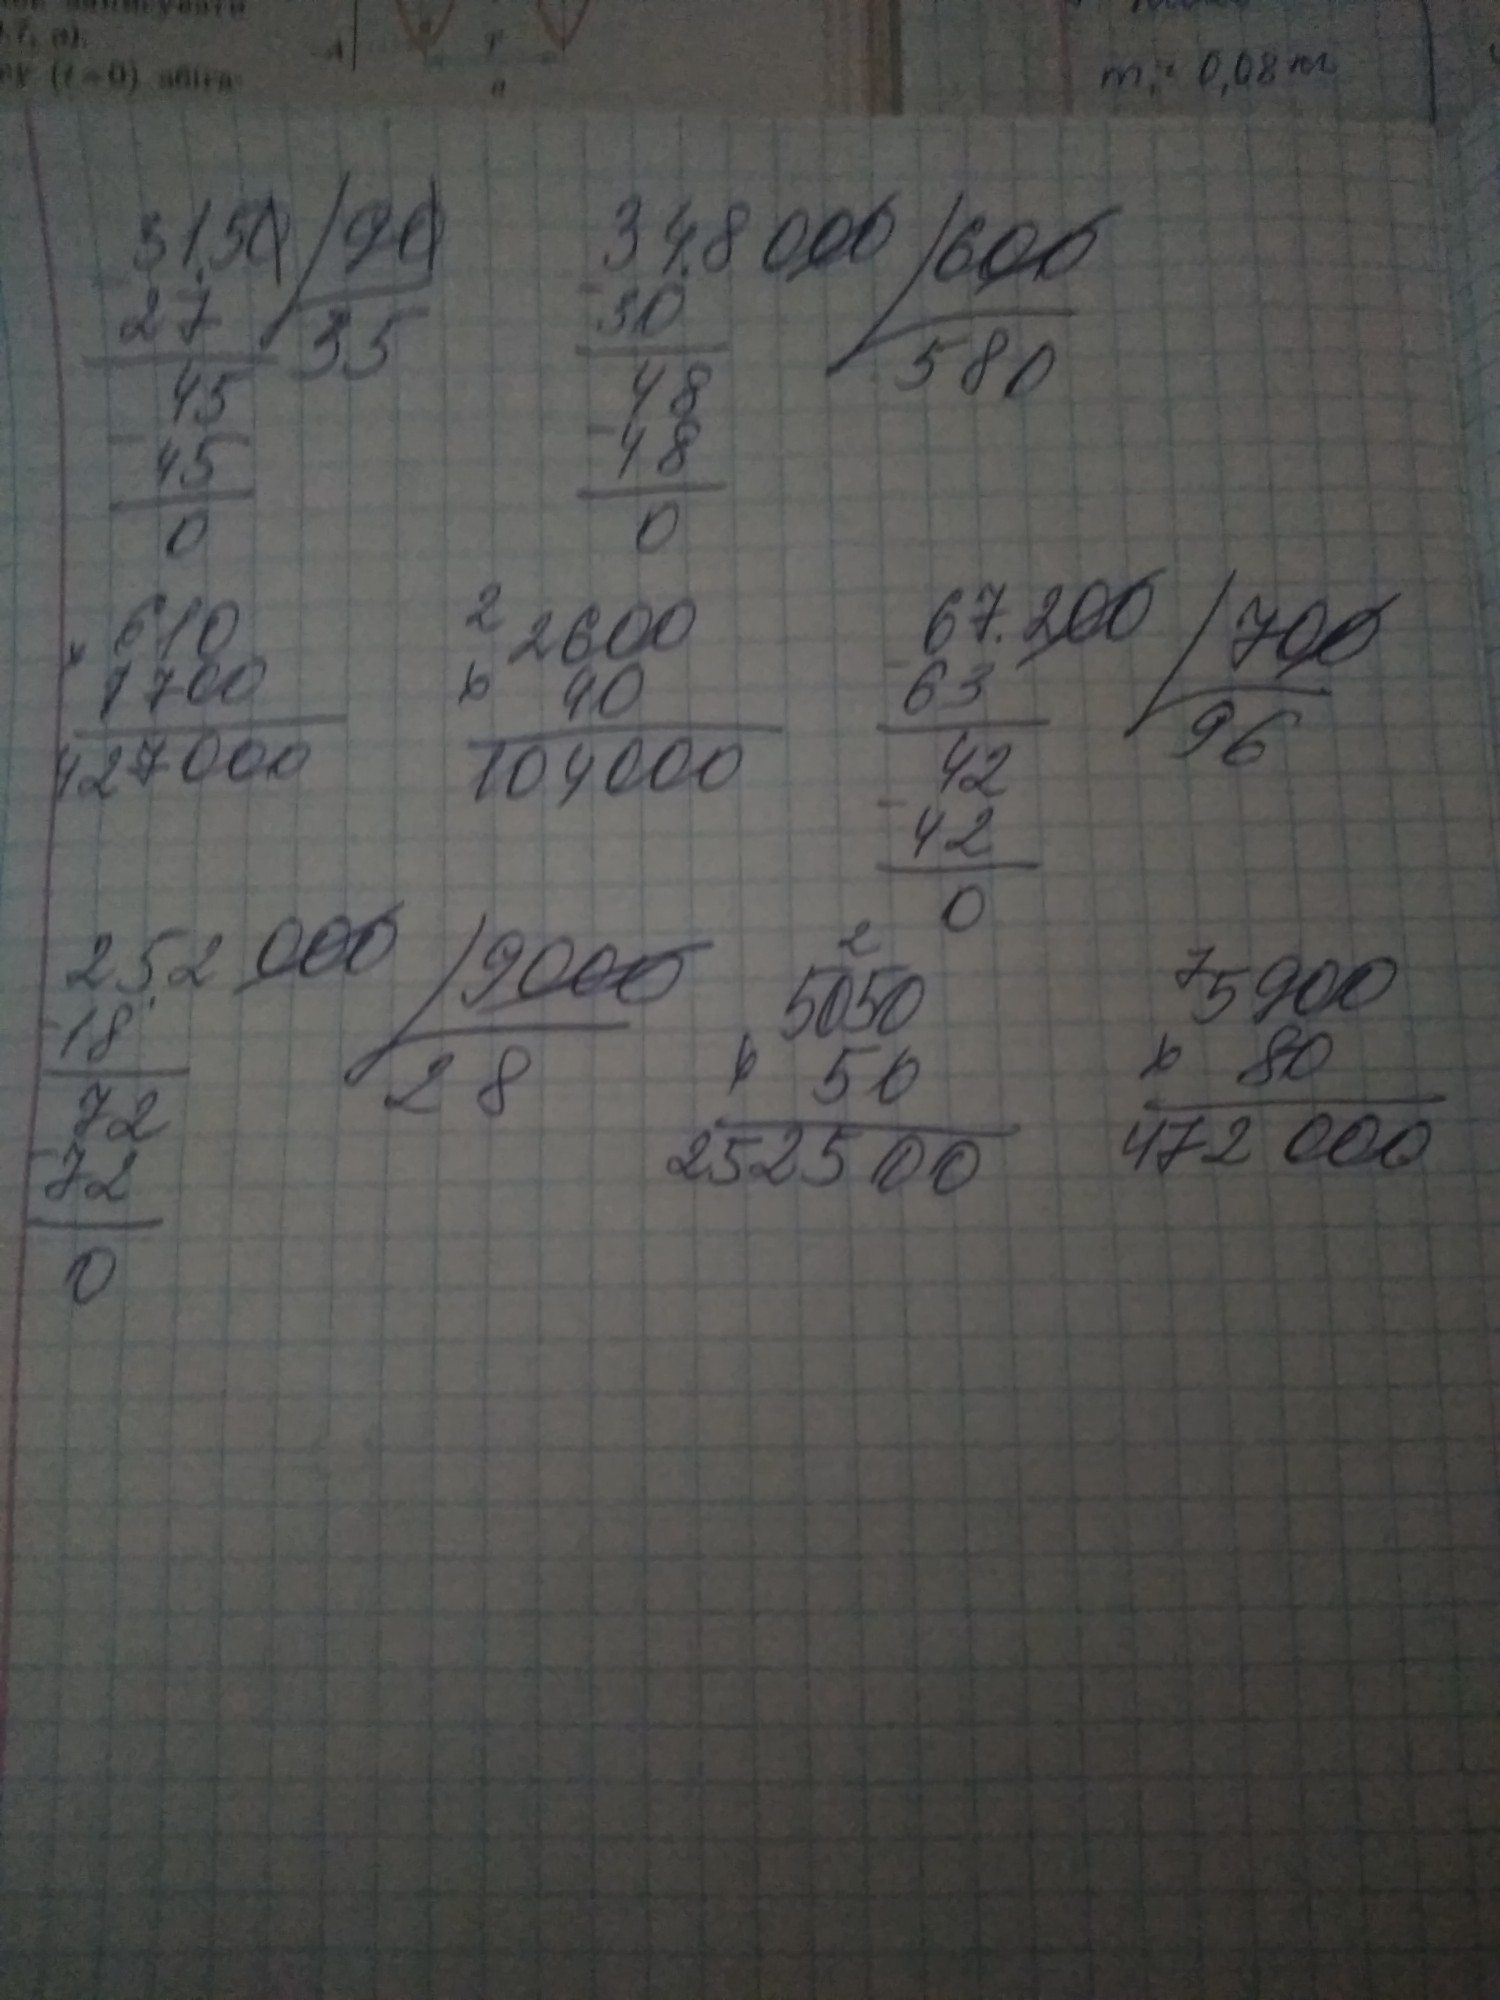 (t = 0)
m₁ = 0,08 кг
3150 / 90
27 35
45
45
0
348000 / 600
30 580
48
48
0
610
× 1700
427000
2
2600
× 40
104000
67200 / 700
63 96
42
42
0
252000 / 9000
18 28
72
72
0
2
5050
× 50
252500
7
5900
× 80
472000